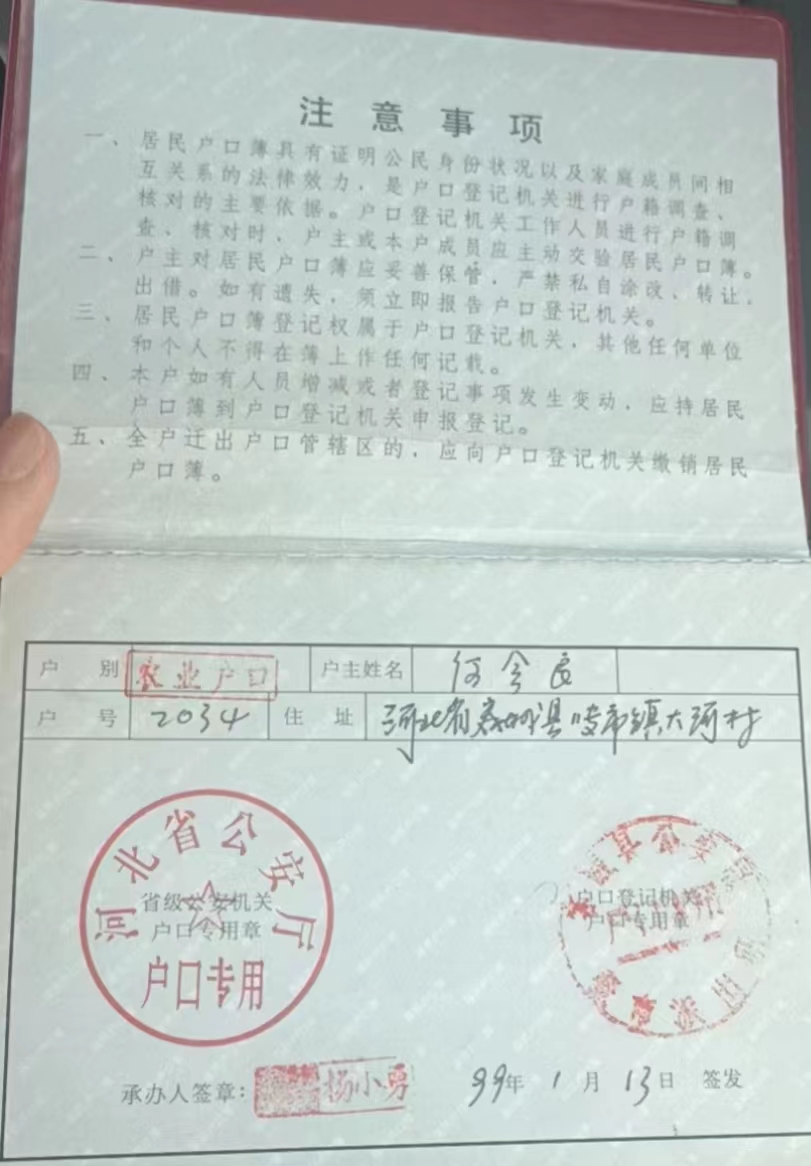 注意事项
一、居民户口簿具有证明公民身份状况以及家庭成员间相
互关系的法律效力，是户口登记机关进行户籍调查、
核对的主要依据。户口登记机关工作人员进行户籍调
查、核对时，户主或本户成员应主动交验居民户口簿。
二、户主对居民户口簿应妥善保管，严禁私自涂改、转让、
出借。如有遗失，须立即报告户口登记机关。
三、居民户口簿登记权属于户口登记机关，其他任何单位
和个人不得在簿上作任何记载。
四、本户如有人员增减或者登记事项发生变动，应持居民
户口簿到户口登记机关申报登记。
五、全户迁出户口管辖区的，应向户口登记机关缴销居民
户口簿。
户别 农业户口 户主姓名 何会良
户号 2034 住址 河北省 县 镇大河村
河北省公安厅
省级公安机关
户口专用章
户口专用
县公安局
户口登记机关
户口专用章
承办人签章： 杨小勇 99年1月13日 签发